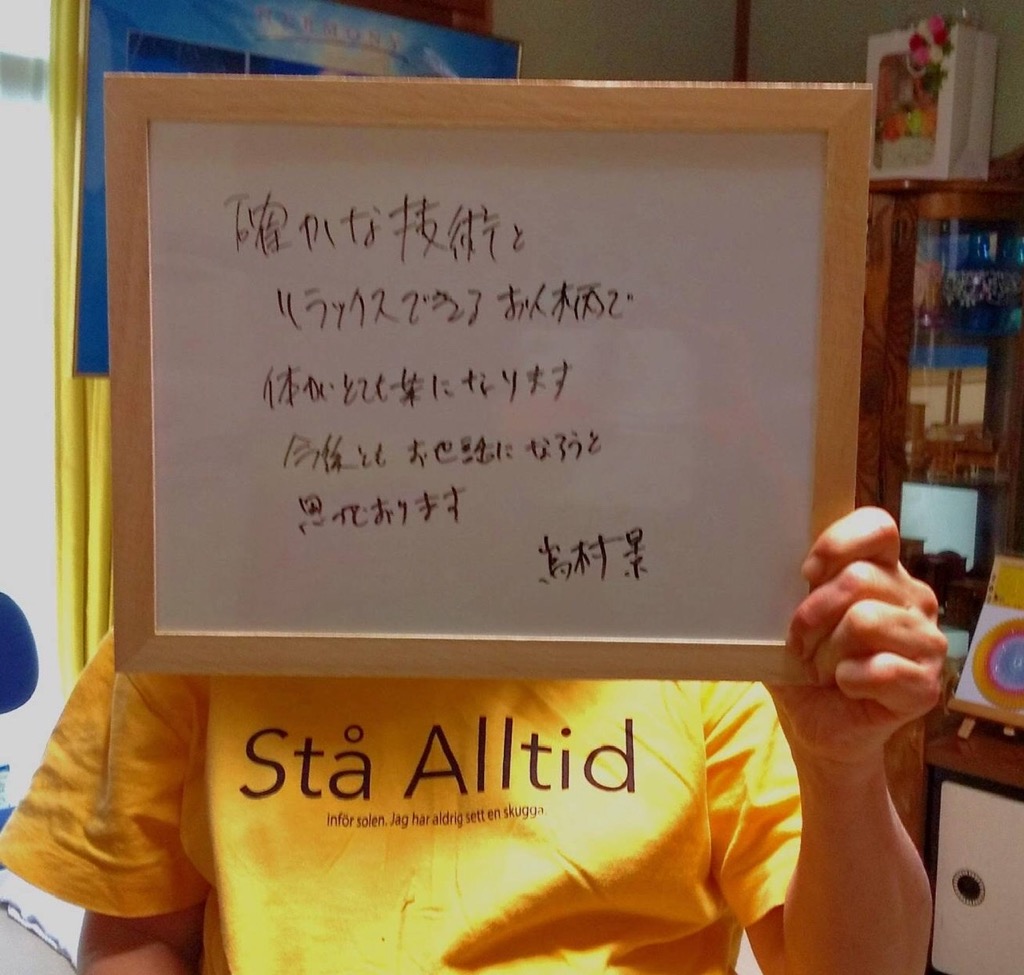 HARMONY
確かな技術と
リラックスできるお人柄で
体がとても楽になります
今後ともお世話になろうと
思っております
嶌村景
Stå Alltid
Inför solen. Jag har aldrig sett en skugga.